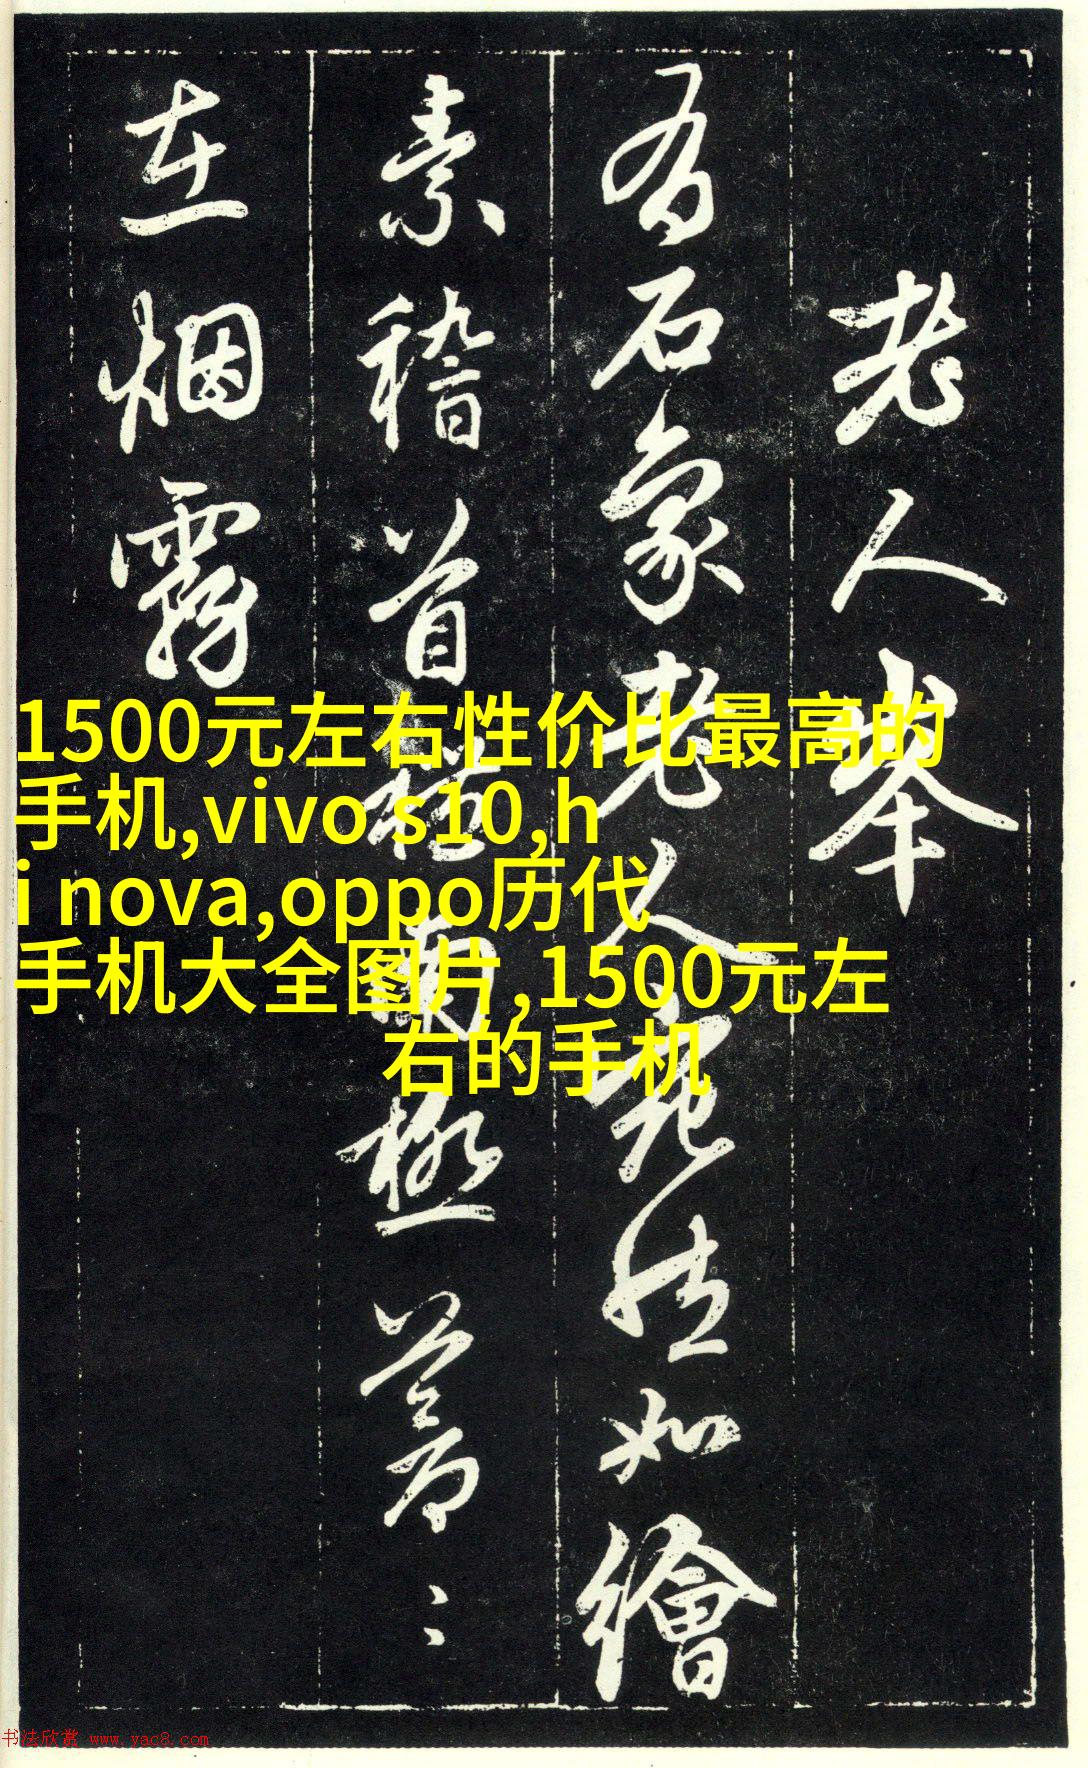 老人峯
有石象老人宛然如繪
素稽首南極蒼〻
在烟霧
1500元左右性价比最高的
手机,vivo s10,h
i nova,oppo历代
手机大全图片,1500元左
右的手机
书法欣赏 www.yac8.com